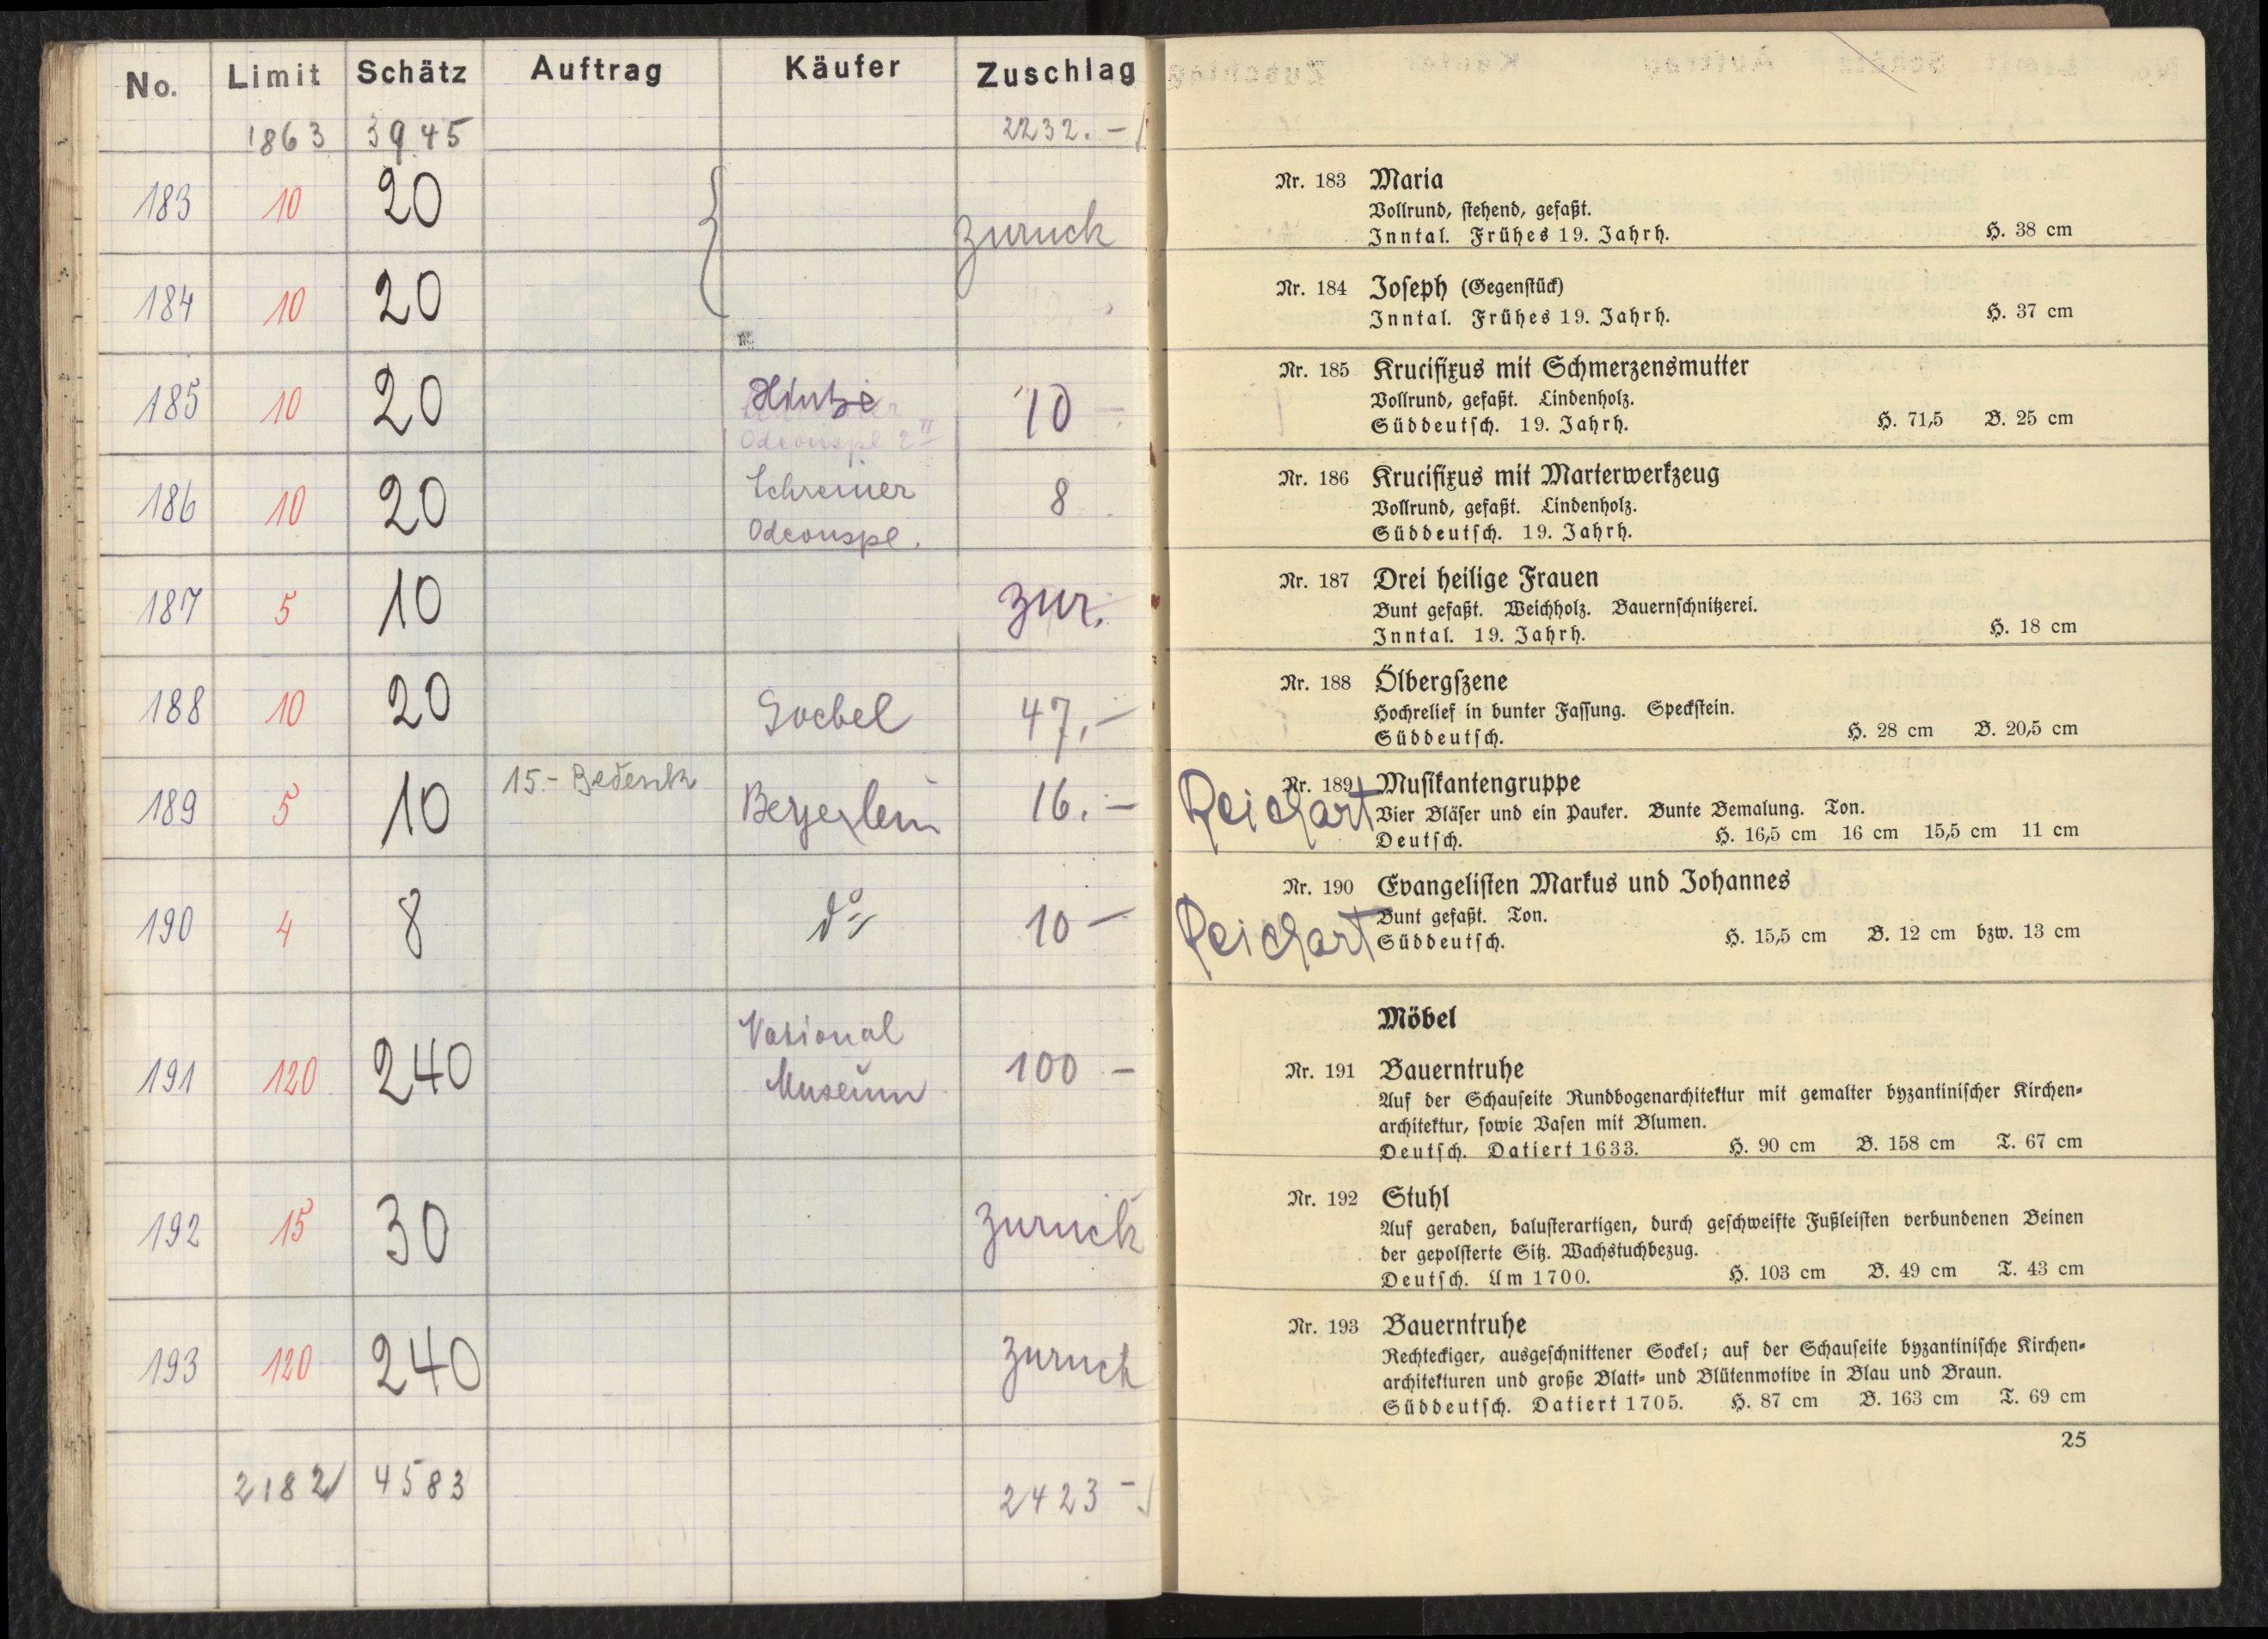 No. Limit Schätz Auftrag Käufer Zuschlag
1863 3945 2232.-
183 10 20 zuruck
184 10 20
185 10 20 10
Odeonspl 2 II
186 10 20 Schreiner 8
Odeonspl.
187 5 10 zur.
188 10 20 Goebel 47,-
189 5 10 15.- Bedenk Beyerlein 16.-
190 4 8 do 10-
191 120 240 National Museum 100-
192 15 30 zuruck
193 120 240 zuruck
2182 4583 2423-
Nr. 183 Maria
Vollrund, stehend, gefaßt.
Inntal. Frühes 19. Jahrh. H. 38 cm
Nr. 184 Joseph (Gegenstück)
Inntal. Frühes 19. Jahrh. H. 37 cm
Nr. 185 Krucifixus mit Schmerzensmutter
Vollrund, gefaßt. Lindenholz.
Süddeutsch. 19. Jahrh. H. 71,5 B. 25 cm
Nr. 186 Krucifixus mit Marterwerkzeug
Vollrund, gefaßt. Lindenholz.
Süddeutsch. 19. Jahrh.
Nr. 187 Drei heilige Frauen
Bunt gefaßt. Weichholz. Bauernschnitzerei.
Inntal. 19. Jahrh. H. 18 cm
Nr. 188 Ölbergszene
Hochrelief in bunter Fassung. Speckstein.
Süddeutsch. H. 28 cm B. 20,5 cm
Nr. 189 Musikantengruppe
Reichart Vier Bläser und ein Pauker. Bunte Bemalung. Ton.
Deutsch. H. 16,5 cm 16 cm 15,5 cm 11 cm
Nr. 190 Evangelisten Markus und Johannes
Reichart Bunt gefaßt. Ton.
Süddeutsch. H. 15,5 cm B. 12 cm bzw. 13 cm
Möbel
Nr. 191 Bauerntruhe
Auf der Schauseite Rundbogenarchitektur mit gemalter byzantinischer Kirchen-
architektur, sowie Vasen mit Blumen.
Deutsch. Datiert 1633. H. 90 cm B. 158 cm T. 67 cm
Nr. 192 Stuhl
Auf geraden, balusterartigen, durch geschweifte Fußleisten verbundenen Beinen
der gepolsterte Sitz. Wachstuchbezug.
Deutsch. Um 1700. H. 103 cm B. 49 cm T. 43 cm
Nr. 193 Bauerntruhe
Rechteckiger, ausgeschnittener Sockel; auf der Schauseite byzantinische Kirchen-
architekturen und große Blatt- und Blütenmotive in Blau und Braun.
Süddeutsch. Datiert 1705. H. 87 cm B. 163 cm T. 69 cm
25